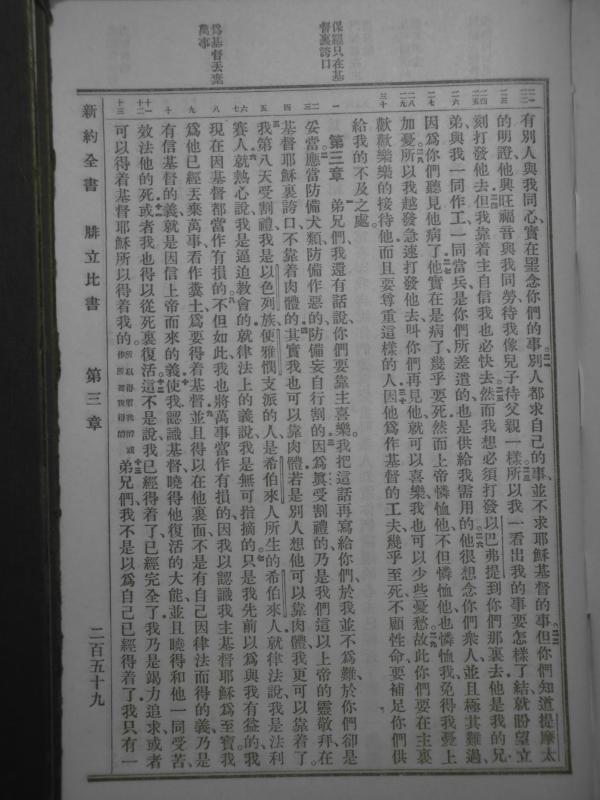 保羅只在基
督裏誇口
爲基督丟棄
萬事
有別人與我同心、實在罣念你們的事、別人都求自己的事、並不求耶穌基督的事、但你們知道提摩太
的明證、他興旺福音與我同勞、待我像兒子待父親一樣、所以我一看出我的事要怎樣了結、就盼望立
刻打發他去、但我靠着主自信我也必快去、然而我想必須打發以巴弗提到你們那裏去、他是我的兄
弟、與我一同作工、一同當兵、是你們所差遣的、也是供給我需用的、他很想念你們衆人、並且極其難過、
因爲你們聽見他病了、他實在是病了、幾乎要死、然而上帝憐恤他、不但憐恤他、也憐恤我、免得我憂上
加憂、所以我越發急速打發他去、叫你們再見他、就可以喜樂、我也可以少些憂愁、故此你們要在主裏
歡歡樂樂的接待他、而且要尊重這樣的人、因他爲作基督的工夫、幾乎至死、不顧性命、要補足你們供
給我的不及之處。
第三章 弟兄們、我還有話說、你們要靠主喜樂、我把這話再寫給你們、於我並不爲難、於你們卻是
妥當、應當防備犬類、防備作惡的、防備妄自行割的、因爲眞受割禮的、乃是我們這以上帝的靈敬拜、在
基督耶穌裏誇口、不靠着肉體的、其實我也可以靠肉體、若是別人想他可以靠肉體、我更可以靠着了。
我第八天受割禮、我是以色列族、便雅憫支派的人、是希伯來人所生的希伯來人、就律法說、我是法利
賽人、就熱心說、我是逼迫教會的、就律法上的義說、我是無可指摘的、只是我先前以爲與我有益的、我
現在因基督都當作有損的、不但如此、我也將萬事當作有損的、因我以認識我主基督耶穌爲至寶、我
爲他已經丟棄萬事、看作糞土、爲要得着基督、並且得以在他裏面、不是有自己因律法而得的義、乃是
有信基督的義、就是因信上帝而來的義、使我認識基督、曉得他復活的大能、並且曉得和他一同受苦、
效法他的死、或者我也得以從死裏復活、這不是說、我已經得着了、已經完全了、我乃是竭力追求、或者
可以得着基督耶穌所以得着我的。所以得着我的或作所要我得的 弟兄們、我不是以爲自己已經得着了、我只有一
新約全書 腓立比書 第三章 二百五十九